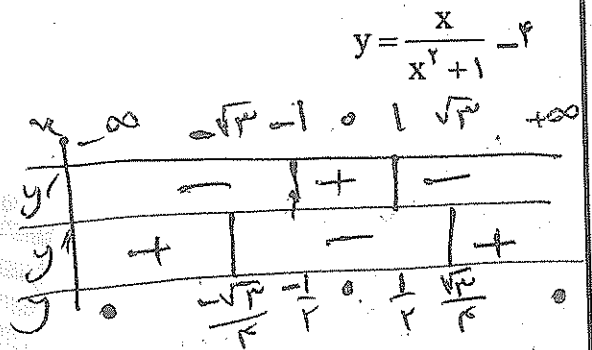 y = x / (x۲ + ۱) -۴
x -∞ -√۳ -۱ ۰ ۱ √۳ +∞
y′ - + -
y″ + - +
y ۰ -√۳/۴ -۱/۲ ۰ ۱/۲ √۳/۴ ۰